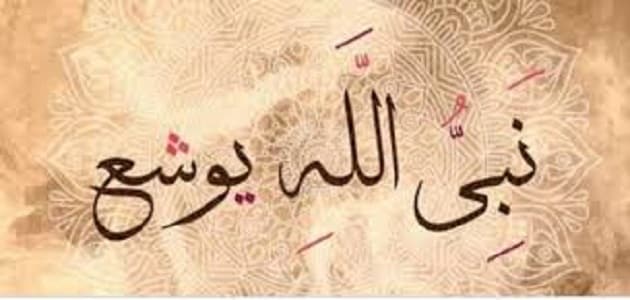 نَبِيُّ اللَّهِ يوشع